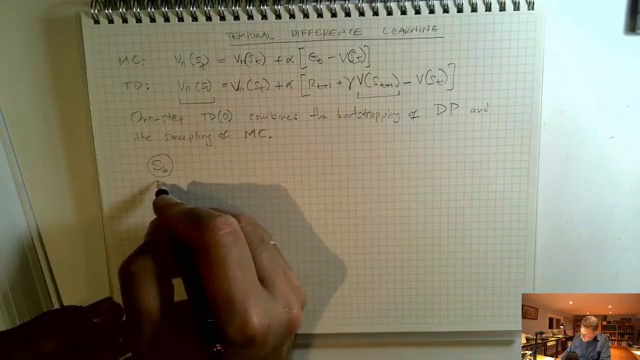 TEMPORAL DIFFERENCE LEARNING
MC: Vπ(St) = Vπ(St) + α[Gt − V(St)]
TD: Vπ(St) = Vπ(St) + α[Rt+1 + γV(St+1) − V(St)]
One-step TD(0) combines the bootstrapping of DP and
the sampling of MC.